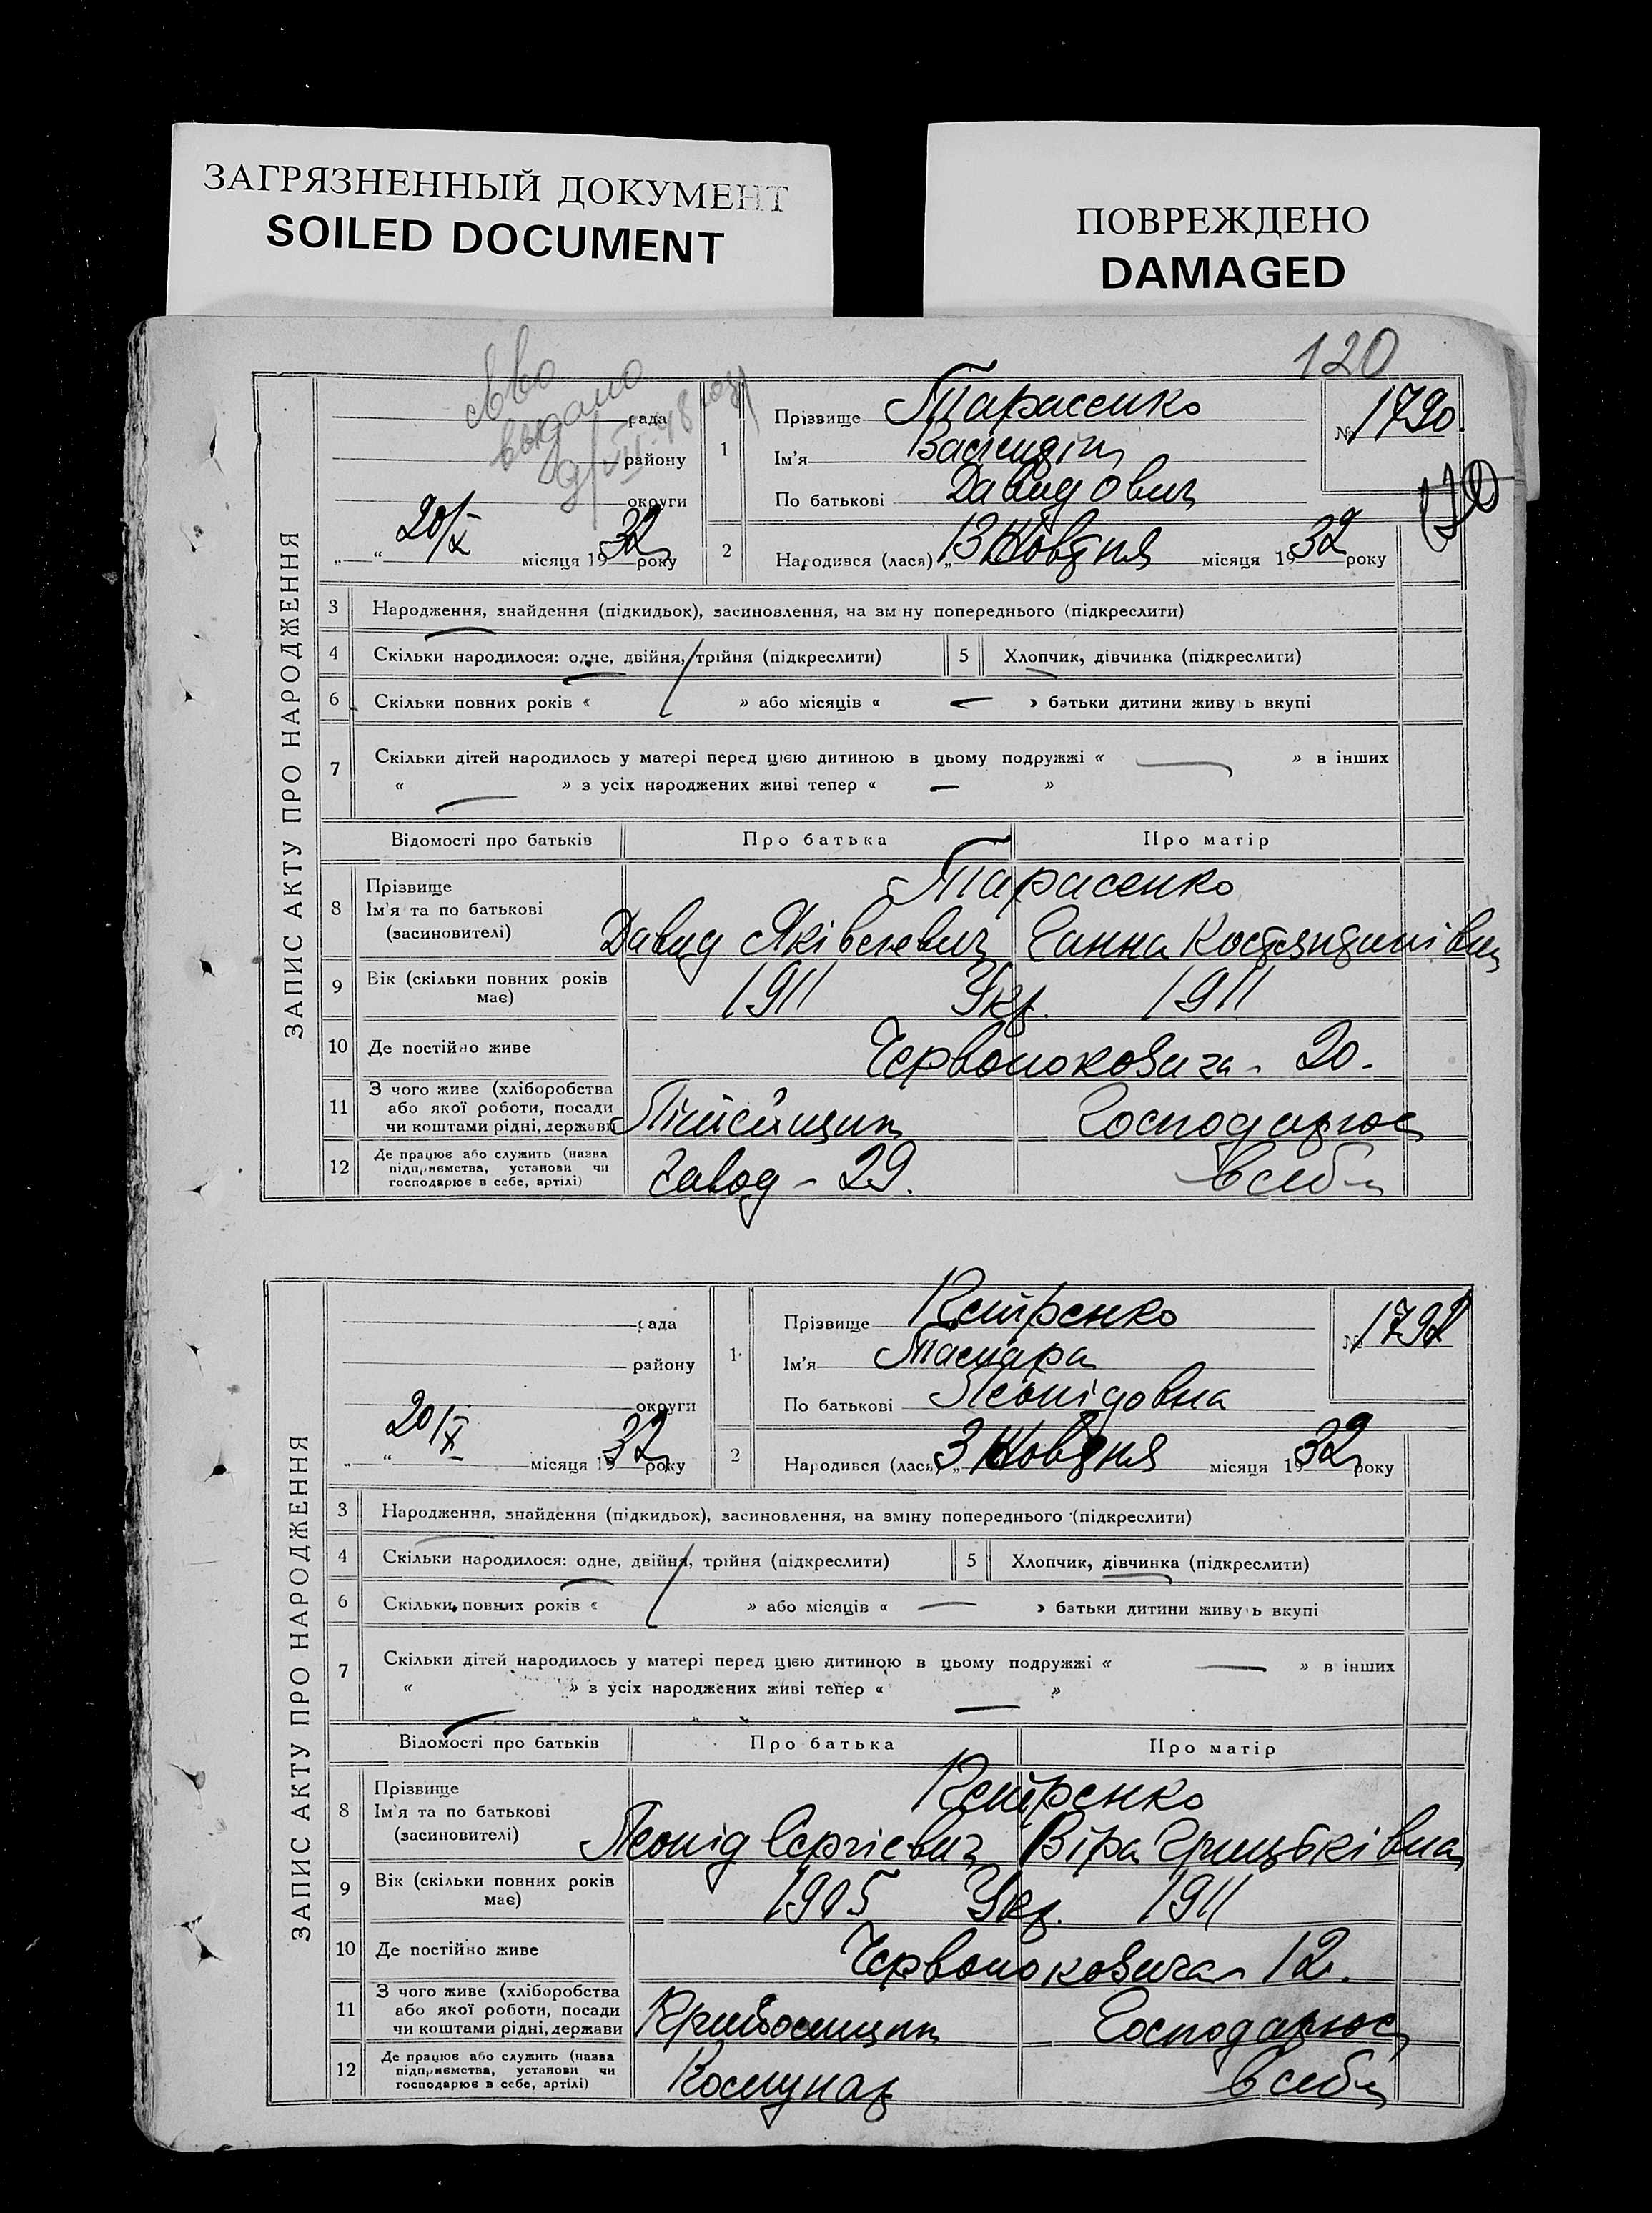 ЗАГРЯЗНЕННЫЙ ДОКУМЕНТ
SOILED DOCUMENT
ПОВРЕЖДЕНО
DAMAGED
120
ЗАПИС АКТУ ПРО НАРОДЖЕННЯ
видано
рада
району
округи
„ “ 20/X місяця 1932 року
1 Прізвище Тарасенко
Ім'я
По батькові Давидович
№ 1790.
120
2 Народився (лася) „13 Жовтня місяця 1932 року
3 Народження, знайдення (підкидьок), засиновлення, на зміну попереднього (підкреслити)
4 Скільки народилося: одне, двійня, трійня (підкреслити) 5 Хлопчик, дівчинка (підкреслити)
6 Скільки повних років « / » або місяців « — » батьки дитини живуть вкупі
7 Скільки дітей народилось у матері перед цією дитиною в цьому подружжі « — » в інших
« — » з усіх народжених живі тепер « — »
Відомості про батьків Про батька Про матір
8 Прізвище Тарасенко
Ім'я та по батькові
(засиновителі) Давид Яківлевич Ганна Костянтинівна
9 Вік (скільки повних років має) 1911 Укр. 1911
10 Де постійно живе Червонокозача - 20.
11 З чого живе (хліборобства
або якої роботи, посади
чи коштами рідні, держави Господарює
12 Де працює або служить (назва
підприємства, установи чи
господарює в себе, артілі) Завод - 29. в себе
ЗАПИС АКТУ ПРО НАРОДЖЕННЯ
рада
району
округи
„ “ 20/X місяця 1932 року
1. Прізвище Петренко
Ім'я Тамара
По батькові Леонідовна
№ 1791
2 Народився (лася) „3 Жовтня місяця 1932 року
3 Народження, знайдення (підкидьок), засиновлення, на зміну попереднього (підкреслити)
4 Скільки народилося: одне, двійня, трійня (підкреслити) 5 Хлопчик, дівчинка (підкреслити)
6 Скільки повних років « / » або місяців « — » батьки дитини живуть вкупі
7 Скільки дітей народилось у матері перед цією дитиною в цьому подружжі « — » в інших
« — » з усіх народжених живі тепер « — »
Відомості про батьків Про батька Про матір
8 Прізвище Петренко
Ім'я та по батькові
(засиновителі) Леонід Сергієвич Віра Грицьківна
9 Вік (скільки повних років має) 1905 Укр. 1911
10 Де постійно живе Червонокозача 12.
11 З чого живе (хліборобства
або якої роботи, посади
чи коштами рідні, держави Господарює
12 Де працює або служить (назва
підприємства, установи чи
господарює в себе, артілі) Комунар в себе